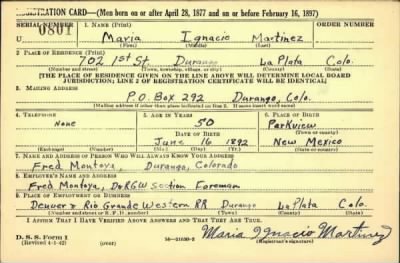 REGISTRATION CARD—(Men born on or after April 28, 1877 and on or before February 16, 1897)
SERIAL NUMBER 1. NAME (Print) ORDER NUMBER
U 801 Maria Ignacio Martinez
(First) (Middle) (Last)
2. PLACE OF RESIDENCE (Print)
702 1st St Durango La Plata Colo.
(Number and street) (Town, township, village, or city) (County) (State)
[THE PLACE OF RESIDENCE GIVEN ON THE LINE ABOVE WILL DETERMINE LOCAL BOARD
JURISDICTION; LINE 2 OF REGISTRATION CERTIFICATE WILL BE IDENTICAL]
3. MAILING ADDRESS
P.O. Box 292 Durango, Colo.
[Mailing address if other than place indicated on line 2. If same insert word same]
4. TELEPHONE 5. AGE IN YEARS 6. PLACE OF BIRTH
None 50 Parkview
DATE OF BIRTH (Town or county)
June 16 1892 New Mexico
(Exchange) (Number) (Mo.) (Day) (Yr.) (State or country)
7. NAME AND ADDRESS OF PERSON WHO WILL ALWAYS KNOW YOUR ADDRESS
Fred Montoya, Durango, Colorado
8. EMPLOYER'S NAME AND ADDRESS
Fred Montoya, D&RGW Section Foreman
9. PLACE OF EMPLOYMENT OR BUSINESS
Denver & Rio Grande Western RR Durango La Plata Colo.
(Number and street or R. F. D. number) (Town) (County) (State)
I AFFIRM THAT I HAVE VERIFIED ABOVE ANSWERS AND THAT THEY ARE TRUE.
D. S. S. Form 1
(Revised 4-1-42) (over) Maria Ignacio Martinez
(Registrant's signature)